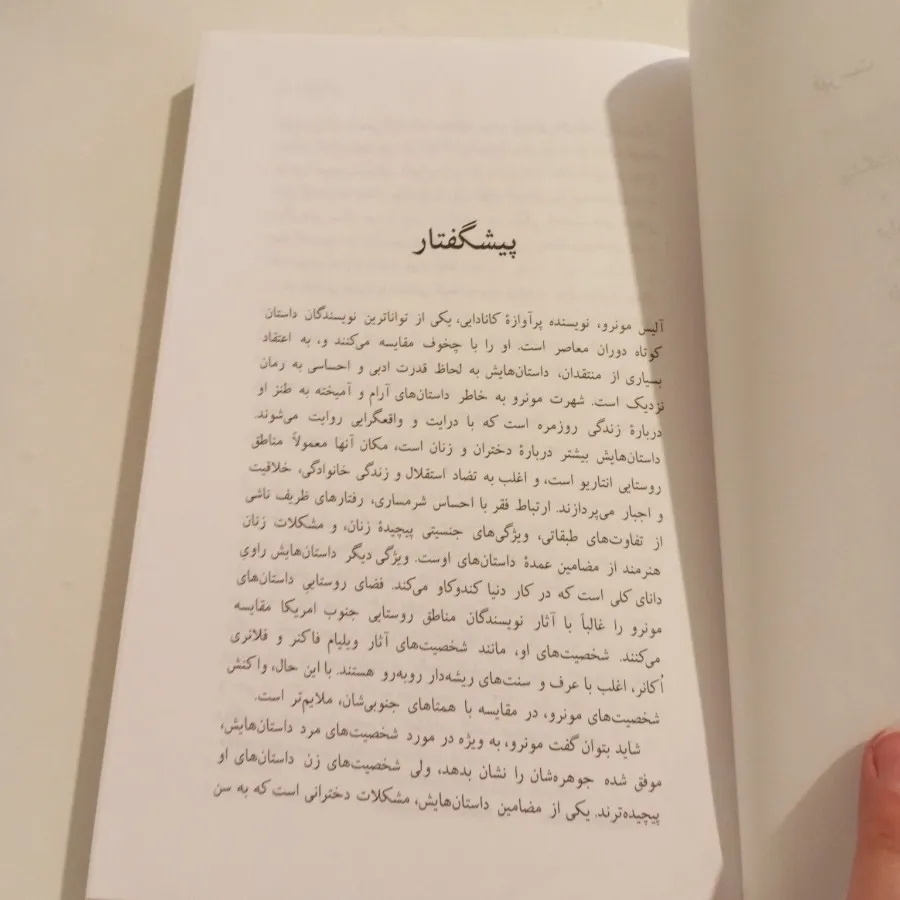 پیشگفتار
آلیس مونرو، نویسنده پرآوازۀ کانادایی، یکی از تواناترین نویسندگان داستان
کوتاه دوران معاصر است. او را با چخوف مقایسه می‌کنند و، به اعتقاد
بسیاری از منتقدان، داستان‌هایش به لحاظ قدرت ادبی و احساسی به رمان
نزدیک است. شهرت مونرو به خاطر داستان‌های آرام و آمیخته به طنز او
دربارۀ زندگی روزمره است که با درایت و واقعگرایی روایت می‌شوند.
داستان‌هایش بیشتر دربارۀ دختران و زنان است، مکان آنها معمولاً مناطق
روستایی انتاریو است، و اغلب به تضاد استقلال و زندگی خانوادگی، خلاقیت
و اجبار می‌پردازند. ارتباط فقر با احساس شرمساری، رفتارهای ظریف ناشی
از تفاوت‌های طبقاتی، ویژگی‌های جنسیتی پیچیدۀ زنان، و مشکلات زنان
هنرمند از مضامین عمدۀ داستان‌های اوست. ویژگی دیگر داستان‌هایش راویِ
دانای کلی است که در کار دنیا کندوکاو می‌کند. فضای روستایی داستان‌های
مونرو را غالباً با آثار نویسندگان مناطق روستایی جنوب امریکا مقایسه
می‌کنند. شخصیت‌های او، مانند شخصیت‌های آثار ویلیام فاکنر و فلانری
اُکانر، اغلب با عرف و سنت‌های ریشه‌دار روبه‌رو هستند. با این حال، واکنش
شخصیت‌های مونرو، در مقایسه با همتاهای جنوبی‌شان، ملایم‌تر است.
شاید بتوان گفت مونرو، به ویژه در مورد شخصیت‌های مرد داستان‌هایش،
موفق شده جوهره‌شان را نشان بدهد، ولی شخصیت‌های زن داستان‌های او
پیچیده‌ترند. یکی از مضامین داستان‌هایش، مشکلات دخترانی است که به سن